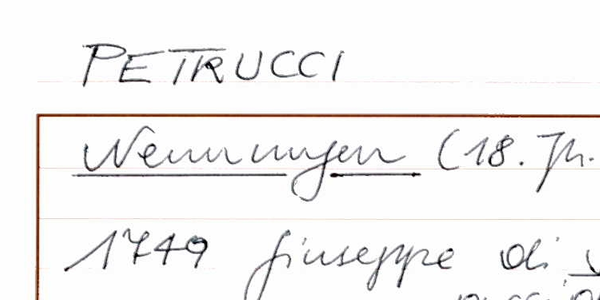 PETRUCCI
Nennungen (18. Jh.
1749 Giuseppe di